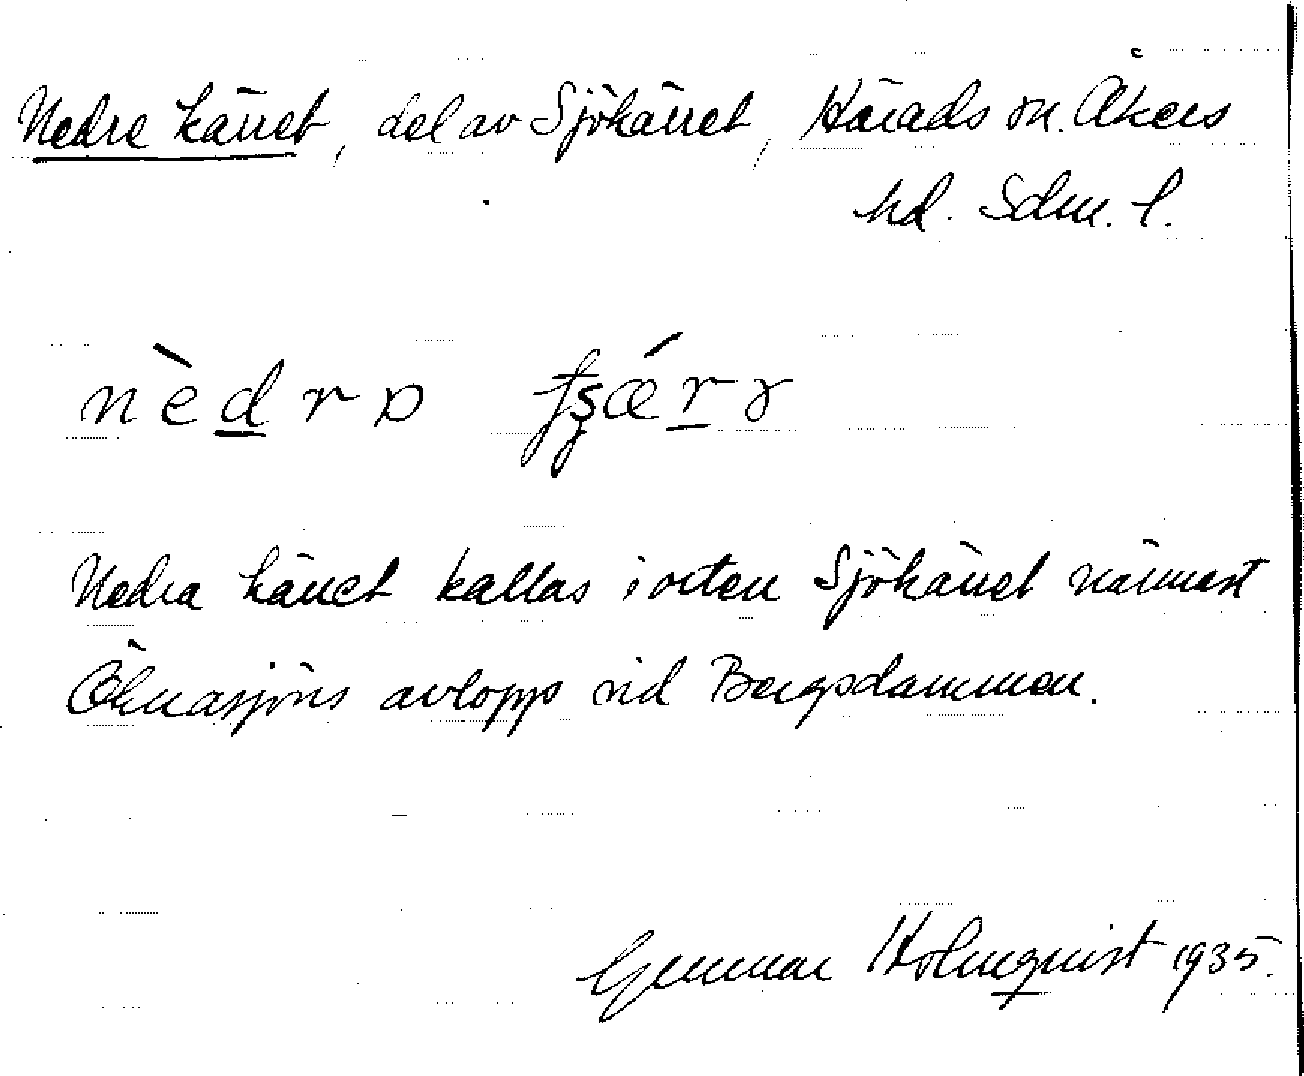 Nedre kärret, del av Sjökärret, Härads sn. Åkers
hd. Sdm. l.
nèdrɒ fʂǽrɤ
Nedra kärret kallas i orten Sjökärret närmast
Öknasjöns avlopp vid Bergsdammen.
Gunnar Holmquist 1935.